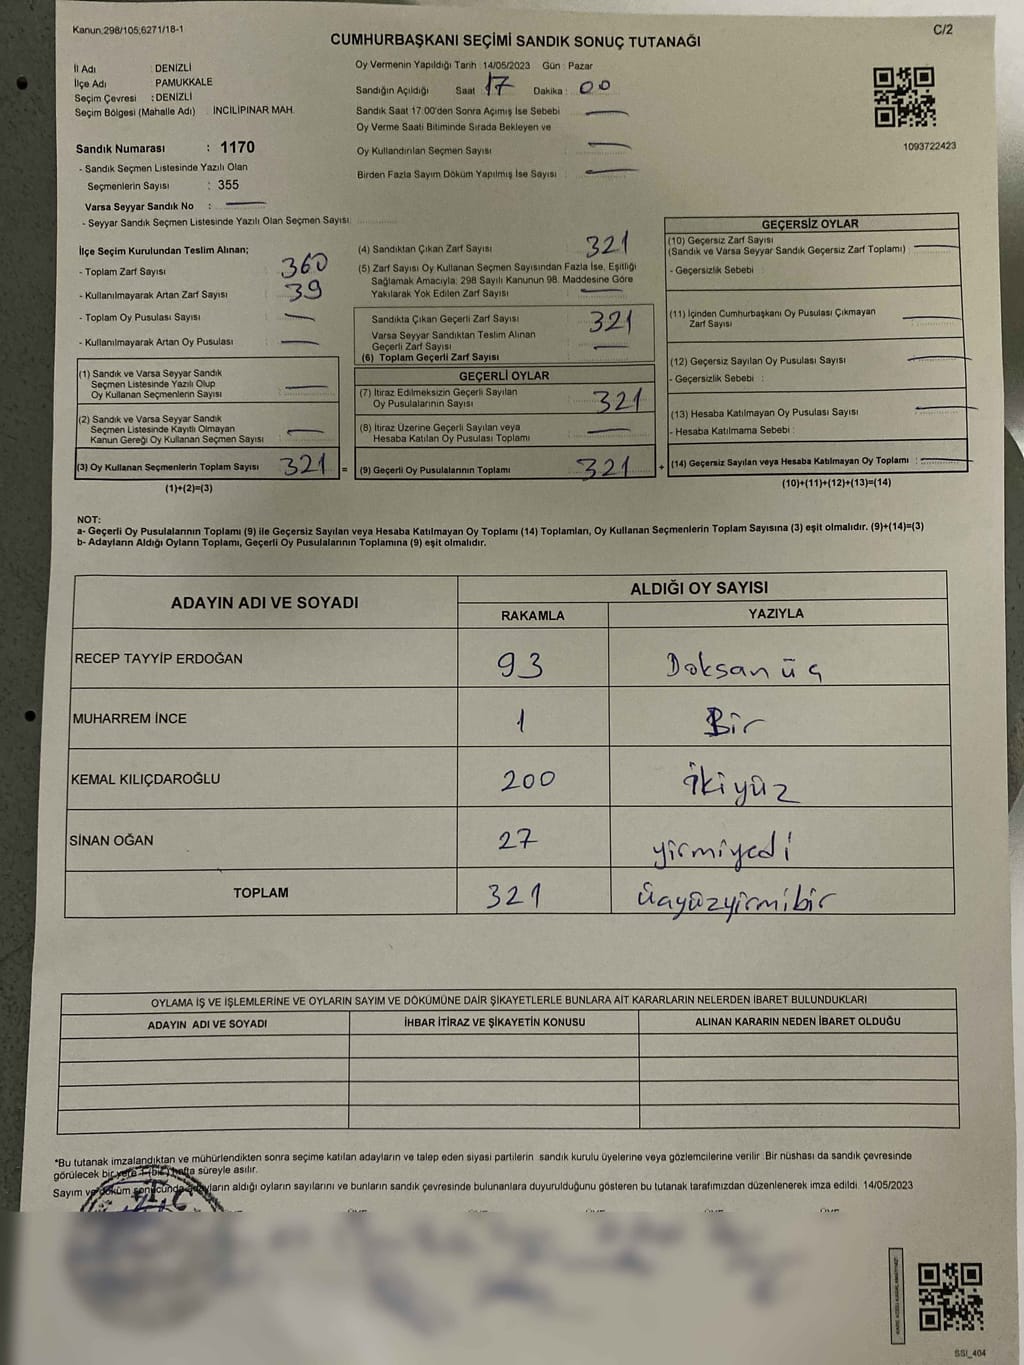 Kanun;298/105;6271/18-1
C/2
CUMHURBAŞKANI SEÇİMİ SANDIK SONUÇ TUTANAĞI
İl Adı : DENİZLİ
İlçe Adı : PAMUKKALE
Seçim Çevresi : DENİZLİ
Seçim Bölgesi (Mahalle Adı) : İNCİLİPINAR MAH.
Sandık Numarası : 1170
- Sandık Seçmen Listesinde Yazılı Olan
Seçmenlerin Sayısı : 355
Varsa Seyyar Sandık No :
- Seyyar Sandık Seçmen Listesinde Yazılı Olan Seçmen Sayısı:
Oy Vermenin Yapıldığı Tarih :14/05/2023 Gün : Pazar
Sandığın Açıldığı Saat : 17 Dakika : 00
Sandık Saat 17:00'den Sonra Açımış İse Sebebi
Oy Verme Saati Bitiminde Sırada Bekleyen ve
Oy Kullandırılan Seçmen Sayısı :
Birden Fazla Sayım Döküm Yapılmış İse Sayısı :
1093722423
İlçe Seçim Kurulundan Teslim Alınan;
- Toplam Zarf Sayısı : 360
- Kullanılmayarak Artan Zarf Sayısı : 39
- Toplam Oy Pusulası Sayısı :
- Kullanılmayarak Artan Oy Pusulası :
(1) Sandık ve Varsa Seyyar Sandık
Seçmen Listesinde Yazılı Olup
Oy Kullanan Seçmenlerin Sayısı :
(2) Sandık ve Varsa Seyyar Sandık
Seçmen Listesinde Kayıtlı Olmayan
Kanun Gereği Oy Kullanan Seçmen Sayısı :
(3) Oy Kullanan Seçmenlerin Toplam Sayısı : 321 =
(1)+(2)=(3)
(4) Sandıktan Çıkan Zarf Sayısı : 321
(5) Zarf Sayısı Oy Kullanan Seçmen Sayısından Fazla İse, Eşitliği
Sağlamak Amacıyla; 298 Sayılı Kanunun 98. Maddesine Göre
Yakılarak Yok Edilen Zarf Sayısı :
Sandıkta Çıkan Geçerli Zarf Sayısı : 321
Varsa Seyyar Sandıktan Teslim Alınan
Geçerli Zarf Sayısı :
(6) Toplam Geçerli Zarf Sayısı
GEÇERLİ OYLAR
(7) İtiraz Edilmeksizin Geçerli Sayılan
Oy Pusulalarının Sayısı : 321
(8) İtiraz Üzerine Geçerli Sayılan veya
Hesaba Katılan Oy Pusulası Toplamı :
(9) Geçerli Oy Pusulalarının Toplamı : 321 +
GEÇERSİZ OYLAR
(10) Geçersiz Zarf Sayısı
(Sandık ve Varsa Seyyar Sandık Geçersiz Zarf Toplamı) :
- Geçersizlik Sebebi :
(11) İçinden Cumhurbaşkanı Oy Pusulası Çıkmayan
Zarf Sayısı :
(12) Geçersiz Sayılan Oy Pusulası Sayısı :
- Geçersizlik Sebebi :
(13) Hesaba Katılmayan Oy Pusulası Sayısı :
- Hesaba Katılmama Sebebi :
(14) Geçersiz Sayılan veya Hesaba Katılmayan Oy Toplamı :
(10)+(11)+(12)+(13)=(14)
NOT:
a- Geçerli Oy Pusulalarının Toplamı (9) ile Geçersiz Sayılan veya Hesaba Katılmayan Oy Toplamı (14) Toplamları, Oy Kullanan Seçmenlerin Toplam Sayısına (3) eşit olmalıdır. (9)+(14)=(3)
b- Adayların Aldığı Oyların Toplamı, Geçerli Oy Pusulalarının Toplamına (9) eşit olmalıdır.
ADAYIN ADI VE SOYADI
ALDIĞI OY SAYISI
RAKAMLA YAZIYLA
RECEP TAYYİP ERDOĞAN 93 Doksan üç
MUHARREM İNCE 1 Bir
KEMAL KILIÇDAROĞLU 200 ikiyüz
SİNAN OĞAN 27 yirmiyedi
TOPLAM 321 üçyüzyirmibir
OYLAMA İŞ VE İŞLEMLERİNE VE OYLARIN SAYIM VE DÖKÜMÜNE DAİR ŞİKAYETLERLE BUNLARA AİT KARARLARIN NELERDEN İBARET BULUNDUKLARI
ADAYIN ADI VE SOYADI İHBAR İTİRAZ VE ŞİKAYETİN KONUSU ALINAN KARARIN NEDEN İBARET OLDUĞU
*Bu tutanak imzalandıktan ve mühürlendikten sonra seçime katılan adayların ve talep eden siyasi partilerin sandık kurulu üyelerine veya gözlemcilerine verilir. Bir nüshası da sandık çevresinde
görülecek bir yere 1 (bir) hafta süreyle asılır.
Sayım ve döküm sonucunda adayların aldığı oyların sayılarını ve bunların sandık çevresinde bulunanlara duyurulduğunu gösteren bu tutanak tarafımızdan düzenlenerek imza edildi. 14/05/2023
T.C
SSI_404